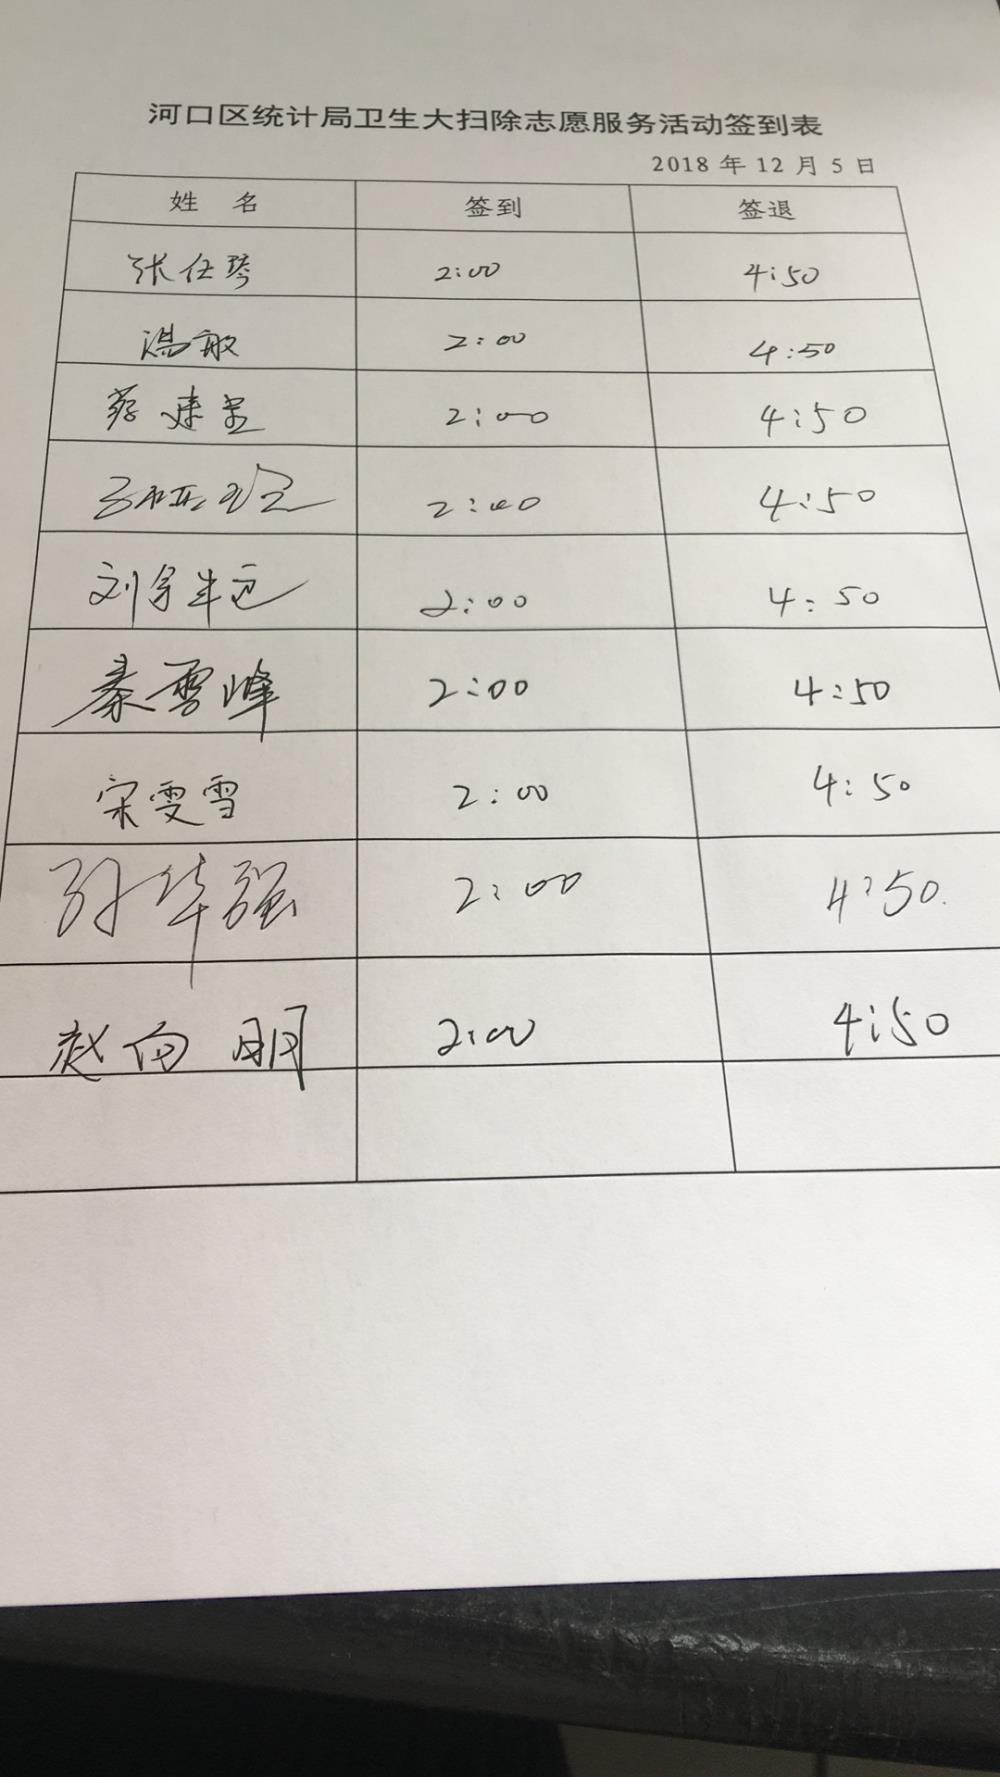 河口区统计局卫生大扫除志愿服务活动签到表
2018 年 12 月 5 日
姓 名 签到 签退
张任琴 2:00 4:50
汤敏 2:00 4:50
建 2:00 4:50
2:00 4:50
刘 2:00 4:50
秦雪峰 2:00 4:50
宋雯雪 2:00 4:50
孙华强 2:00 4:50
赵向明 2:00 4:50